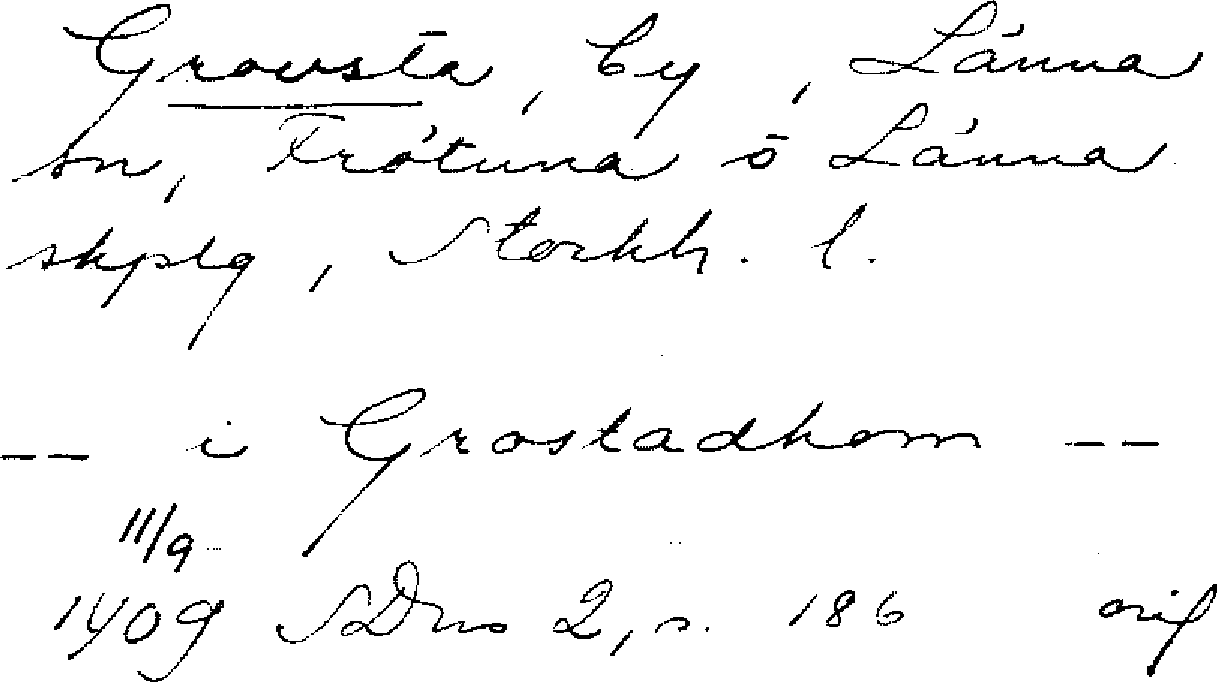 Growsta, by, Länna
sn, Frötuna o Länna
skplg, Stockh. l.
-- i Grostadhom --
11/9
1409 SDns 2, s. 186 orig